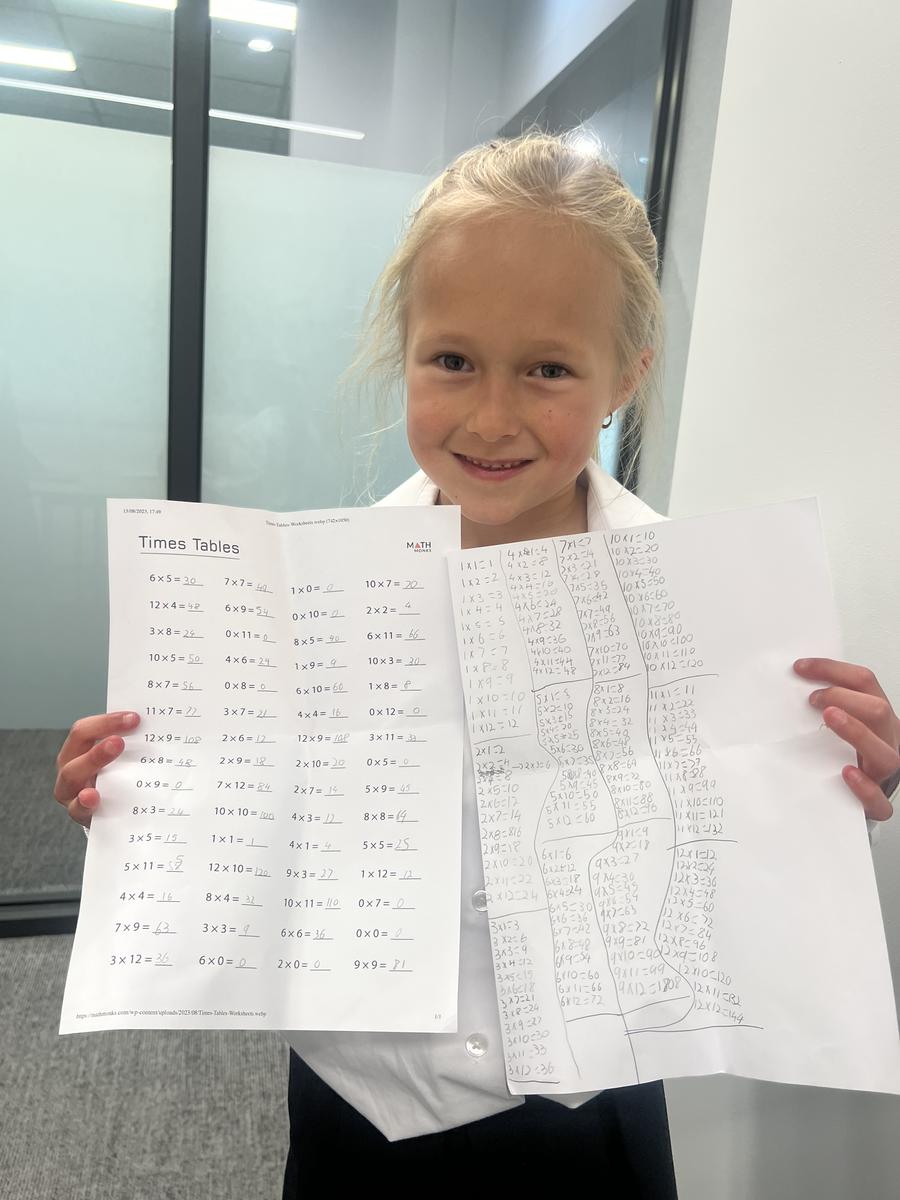 13/08/2023, 17:49
Times-Tables-Worksheets.webp (742×1050)
Times Tables
MATH
MONKS
6 x 5 = 30 7 x 7 = 49 1 x 0 = 0 10 x 7 = 70
12 x 4 = 48 6 x 9 = 54 0 x 10 = 0 2 x 2 = 4
3 x 8 = 24 0 x 11 = 0 8 x 5 = 40 6 x 11 = 66
10 x 5 = 50 4 x 6 = 24 1 x 9 = 9 10 x 3 = 30
8 x 7 = 56 0 x 8 = 0 6 x 10 = 60 1 x 8 = 8
11 x 7 = 77 3 x 7 = 21 4 x 4 = 16 0 x 12 = 0
12 x 9 = 108 2 x 6 = 12 12 x 9 = 108 3 x 11 = 33
6 x 8 = 48 2 x 9 = 18 2 x 10 = 20 0 x 5 = 0
0 x 9 = 0 7 x 12 = 84 2 x 7 = 14 5 x 9 = 45
8 x 3 = 24 10 x 10 = 100 4 x 3 = 12 8 x 8 = 64
3 x 5 = 15 1 x 1 = 1 4 x 1 = 4 5 x 5 = 25
5 x 11 = 55 12 x 10 = 120 9 x 3 = 27 1 x 12 = 12
4 x 4 = 16 8 x 4 = 32 10 x 11 = 110 0 x 7 = 0
7 x 9 = 63 3 x 3 = 9 6 x 6 = 36 0 x 0 = 0
3 x 12 = 36 6 x 0 = 0 2 x 0 = 0 9 x 9 = 81
https://mathmonks.com/wp-content/uploads/2023/08/Times-Tables-Worksheets.webp
1/1
1x1=1
1x2=2
1x3=3
1x4=4
1x5=5
1x6=6
1x7=7
1x8=8
1x9=9
1x10=10
1x11=11
1x12=12
2x1=2
2x2=4 →2x3=6
2x5=10
2x6=12
2x7=14
2x8=816
2x9=18
2x10=20
2x11=22
2x12=24
3x1=3
3x2=6
3x3=9
3x4=12
3x5=15
3x6=18
3x7=21
3x8=24
3x9=27
3x10=30
3x11=33
3x12=36
4x1=4
4x2=8
4x3=12
4x4=16
4x5=20
4x6=24
4x7=28
4x8=32
4x9=36
4x10=40
4x11=44
4x12=48
5x1=5
5x2=10
5x3=15
5x4=20
5x5=25
5x6=30
5x7=35
5x8=40
5x9=45
5x10=50
5x11=55
5x12=60
6x1=6
6x2=12
6x3=18
6x4=24
6x5=30
6x6=36
6x7=42
6x8=48
6x9=54
6x10=60
6x11=66
6x12=72
7x1=7
7x2=14
7x3=21
7x4=28
7x5=35
7x6=42
7x7=49
7x8=56
7x9=63
7x10=70
7x11=77
7x12=84
8x1=8
8x2=16
8x3=24
8x4=32
8x5=40
8x6=48
8x7=56
8x9=72
8x10=80
8x11=88
9x1=9
9x2=18
9x3=27
9x5=45
9x6=54
9x7=63
9x8=72
9x9=81
9x10=90
9x11=99
10x1=10
10x2=20
10x3=30
10x4=40
10x5=50
10x6=60
10x7=70
10x8=80
10x9=90
10x10=100
10x11=110
10x12=120
11x1=11
11x2=22
11x3=33
11x4=44
11x5=55
11x6=66
11x7=77
11x8=88
11x9=99
11x10=110
11x11=121
11x12=132
12x1=12
12x2=24
12x3=36
12x4=48
12x5=60
12x6=72
12x7=84
12x8=96
12x9=108
12x10=120
12x11=132
12x12=144